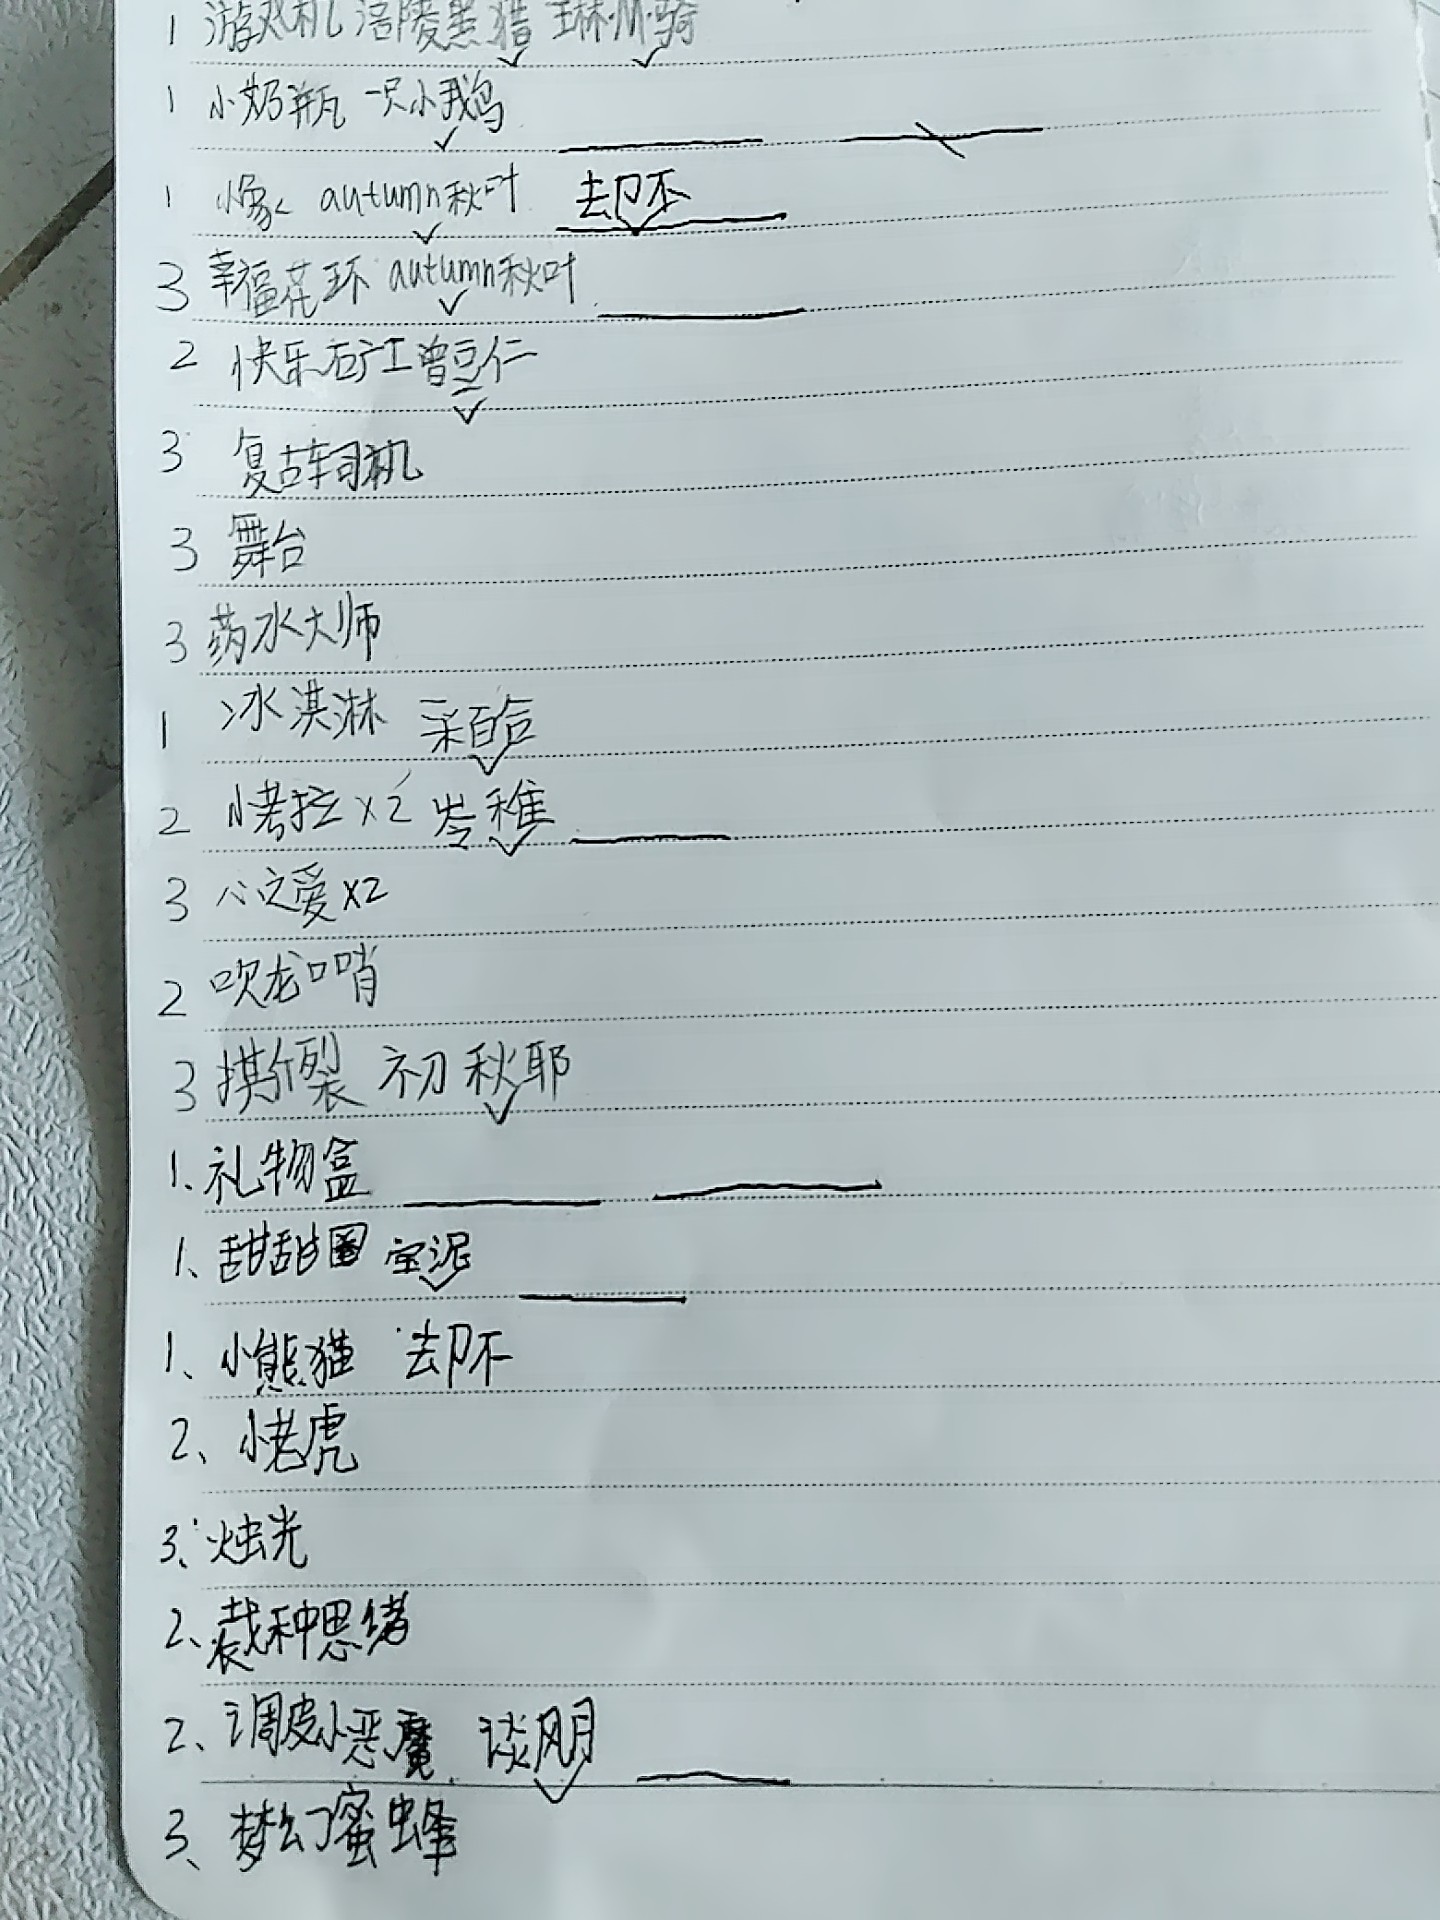 1 游戏机 涪陵黑猎 琳·M·骑
1 小奶瓶 一只小鹅
1 小象 autumn秋叶 去卩不
3 幸福花环 autumn秋叶
2 快乐矿工曾豆仁
3 复古车司机
3 舞台
3 药水大师
1 冰淇淋 采百合
2 小考拉x2 岑稚
3 心之爱x2
2 吹龙口哨
3 撕裂 初秋耶
1、礼物盒
1、甜甜圈 宝泥
1、小熊猫 去卩不
2、小老虎
3、烛光
2、裁种思绪
2、调皮小恶魔 谈朋
3、梦幻蜜蜂